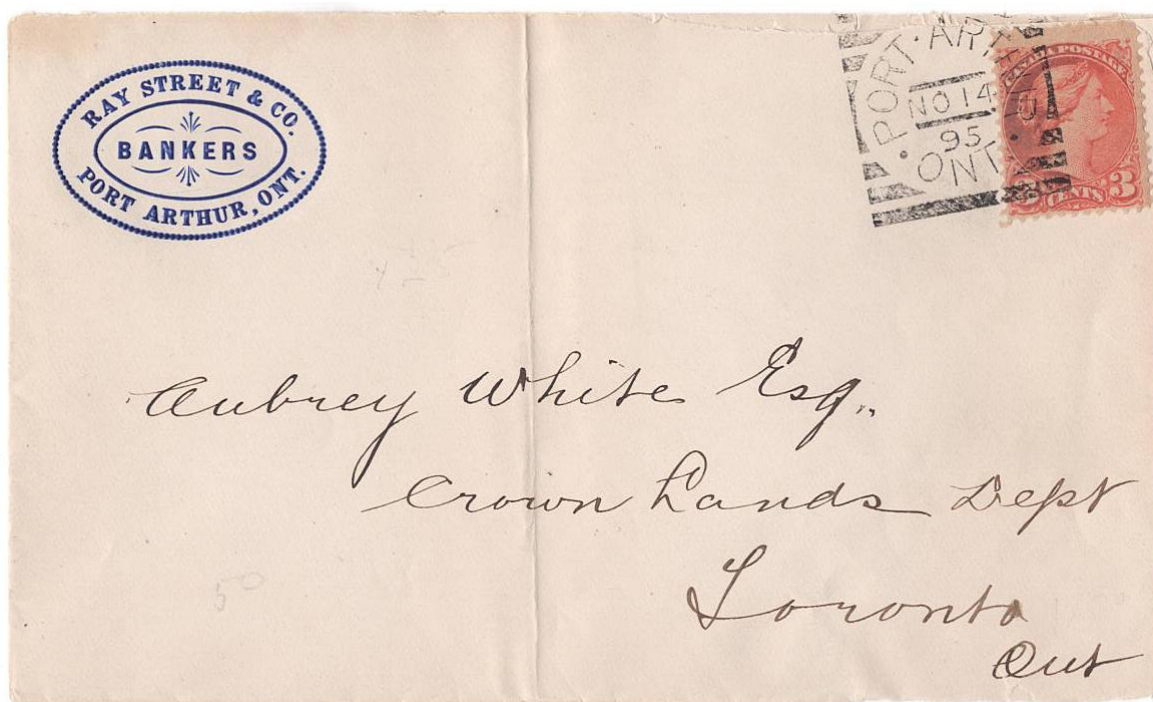 RAY STREET & CO.
BANKERS
PORT ARTHUR, ONT.
PORT · ARTHU
NO 14
95
ONT
POSTAGE
3 CENTS 3
Aubrey White Esq.
Crown Lands Dept
Toronto
Ont
50